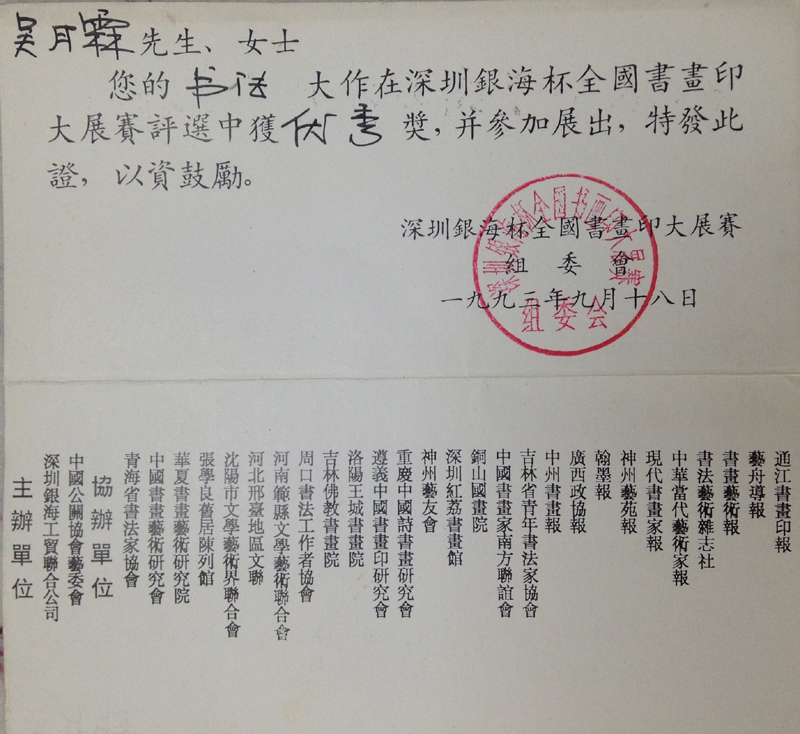 吴月霖先生、女士
您的书法大作在深圳銀海杯全國書畫印
大展賽評選中獲优秀獎，并參加展出，特發此
證，以資鼓勵。
深圳銀海杯全國書畫印大展賽
組委會
一九九三年九月十八日
深圳银海杯全国书画印大展赛
组委会
主辦單位
深圳銀海工貿聯合公司
中國公關協會藝委會
協辦單位
青海省書法家協會
中國書畫藝術研究會
華夏書畫藝術研究院
張學良舊居陳列館
沈陽市文學藝術界聯合會
河北邢臺地區文聯
河南範縣文學藝術聯合會
周口書法工作者協會
吉林佛教書畫院
洛陽王城書畫院
遵義中國書畫印研究會
重慶中國詩書畫研究會
神州藝友會
深圳紅荔書畫館
銅山國畫院
中國書畫家南方聯誼會
吉林省青年書法家協會
中州書畫報
廣西政協報
翰墨報
神州藝苑報
現代書畫家報
中華當代藝術家報
書法藝術雜志社
書畫藝術報
藝舟導報
通江書畫印報